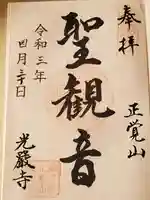 奉拝
正覚山
聖観音
令和三年
四月三十日
光嚴寺